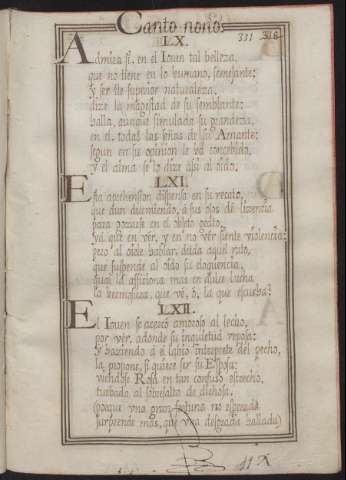 Canto nono.
331 316
LX.
Admira se, en el Iouen tal belleza,
que no tiene en lo humano, semejante;
y ser de superior naturaleza,
dize la magestad de su semblante:
halla, aunque simulada su grandeza,
en el, todas las señas de su Amante;
segun en su opinion le vá concebido,
y el alma se lo dize assi al oìdo.
LXI.
Esta aprehension dispensa en su recato,
que aun durmiendo, a sus ojos dé licencia
para en el objeto grato,
ya que en ver, y en no ver siente violencia;
pero al oirle hablar, deida aquel rato,
que suspende al oido su eloquencia,
qual la afficiona mas en dulce lucha
la hermosura, que vé, ò, la que escucha?
LXII.
El Iouen se acercò amoroso al lecho,
por ver, adonde su inquietud reposa;
y haziendo á el labio Interprete del pecho,
la propone, si quiere ser su Esposa:
viendose Rosa en tan confuso estrecho,
turbada al sobresalto de dichosa,
(porque vna gran fortuna no esperada
surprende más, que vna desgracia hallada)